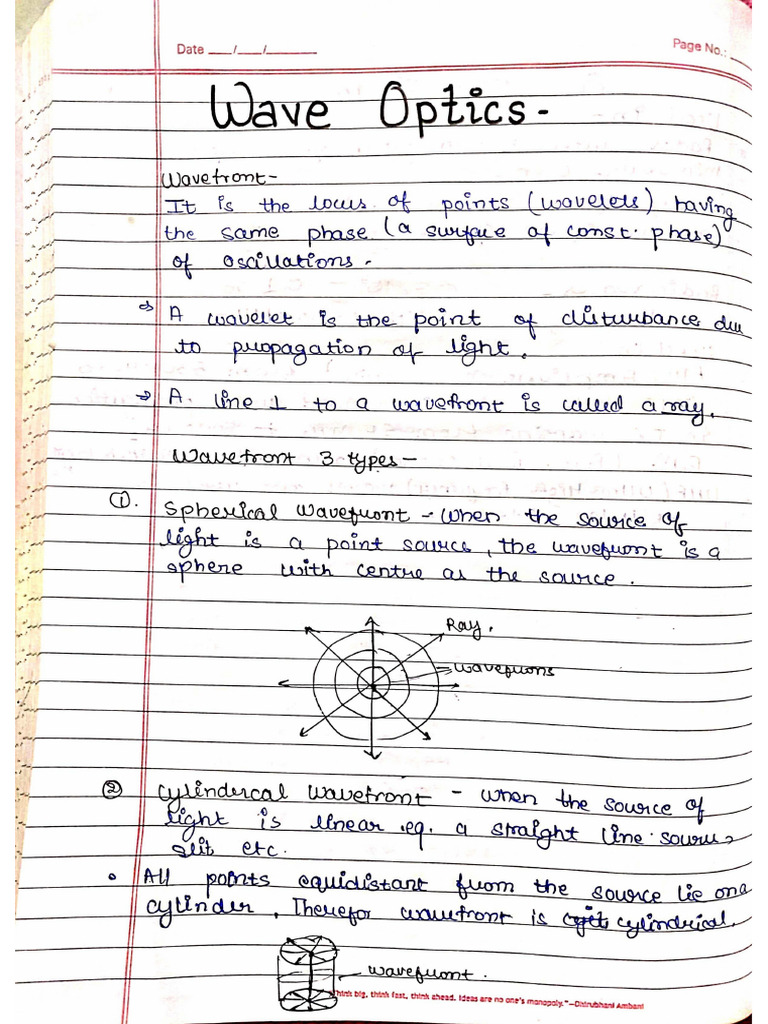 Date ___/___/______
Page No.: __
Wave Optics -
Wavefront -
It is the locus of points (wavelets) having
the same phase (a surface of const. phase)
of oscillations.
→ A wavelet is the point of disturbance due
to propagation of light.
→ A. line ⊥ to a wavefront is called a ray.
Wavefront 3 types -
①. Spherical wavefront - when the source of
light is a point source, the wavefront is a
sphere with centre as the source.
Ray.
②  Cylindercal wavefront - when the source of
light is linear eg. a straight line source,
slit etc.
• All points equidistant from the source lie on a
cylinder, Therefor wavefront is cylindrical.
wavefront.
"Think big, think fast, think ahead. Ideas are no one's monopoly."–Dhirubhani Ambani